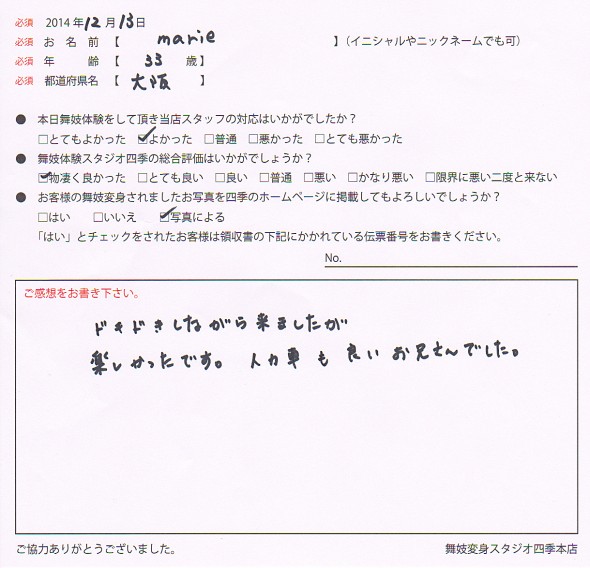 必須 2014年12月13日
必須 お名前【 marie 】(イニシャルやニックネームでも可)
必須 年齢【 33 歳】
必須 都道府県名【 大阪 】
● 本日舞妓体験をして頂き当店スタッフの対応はいかがでしたか?
□とてもよかった ☑よかった □普通 □悪かった □とても悪かった
● 舞妓体験スタジオ四季の総合評価はいかがでしょうか?
☑物凄く良かった □とても良い □良い □普通 □悪い □かなり悪い □限界に悪い二度と来ない
● お客様の舞妓変身されましたお写真を四季のホームページに掲載してもよろしいでしょうか?
□はい □いいえ ☑写真による
「はい」とチェックをされたお客様は領収書の下記にかかれている伝票番号をお書きください。
No.
ご感想をお書き下さい。
ドキドキしながら来ましたが
楽しかったです。人力車も良いお兄さんでした。
ご協力ありがとうございました。 舞妓変身スタジオ四季本店